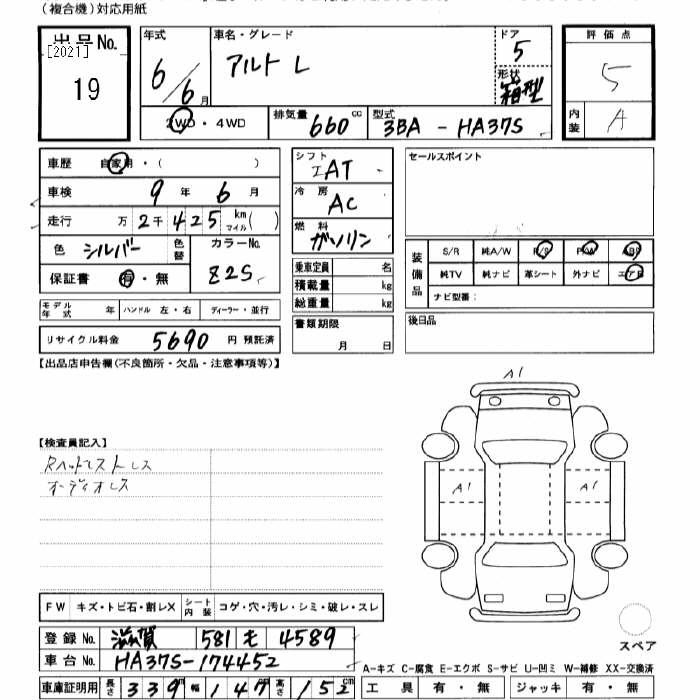 (複合機)対応用紙
出品No.
[2021]
19
年式
6/6月
車名・グレード
アルト L
ドア
5
形状
箱型
評価点
5
内装
A
2WD・4WD
排気量 660 cc
型式 3BA - HA37S
車歴 自家用・( )
車検 9年 6月
走行 万 2千 4 2 5 km マイル( )
色 シルバー
色替
カラーNo.
Z2S
保証書 有・無
シフト
IAT
冷房
AC
燃料
ガソリン
乗車定員 名
積載量 kg
総重量 kg
セールスポイント
装備品
S/R 純A/W P/S P/W ABS
純TV 純ナビ 革シート 外ナビ エアB
ナビ型番:
モデル年式 年 ハンドル 左・右 ディーラー・並行
リサイクル料金 5690 円 預託済
書類期限
月 日
後日品
【出品店申告欄(不良箇所・欠品・注意事項等)】
A1
【検査員記入】
Rヘッドレストレス
オーディオレス
A1
A1
FW キズ・トビ石・割レX シート内装 コゲ・穴・汚レ・シミ・破レ・スレ
登録No. 滋賀 581 モ 4589
スペア
車台No. HA37S-174452
A-キズ C-腐食 E-エクボ S-サビ U-凹ミ W-補修 XX-交換済
車庫証明用 長さ 339m 幅 147m 高さ 152cm
工具 有・無 ジャッキ 有・無